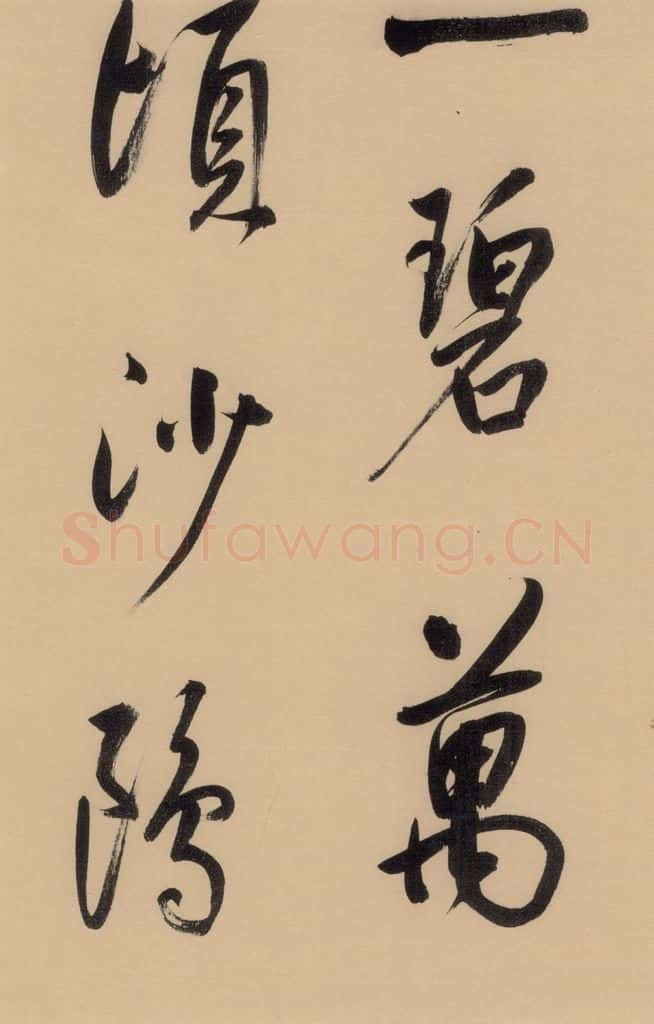 一碧萬
頃沙鷗
Shufawang.CN